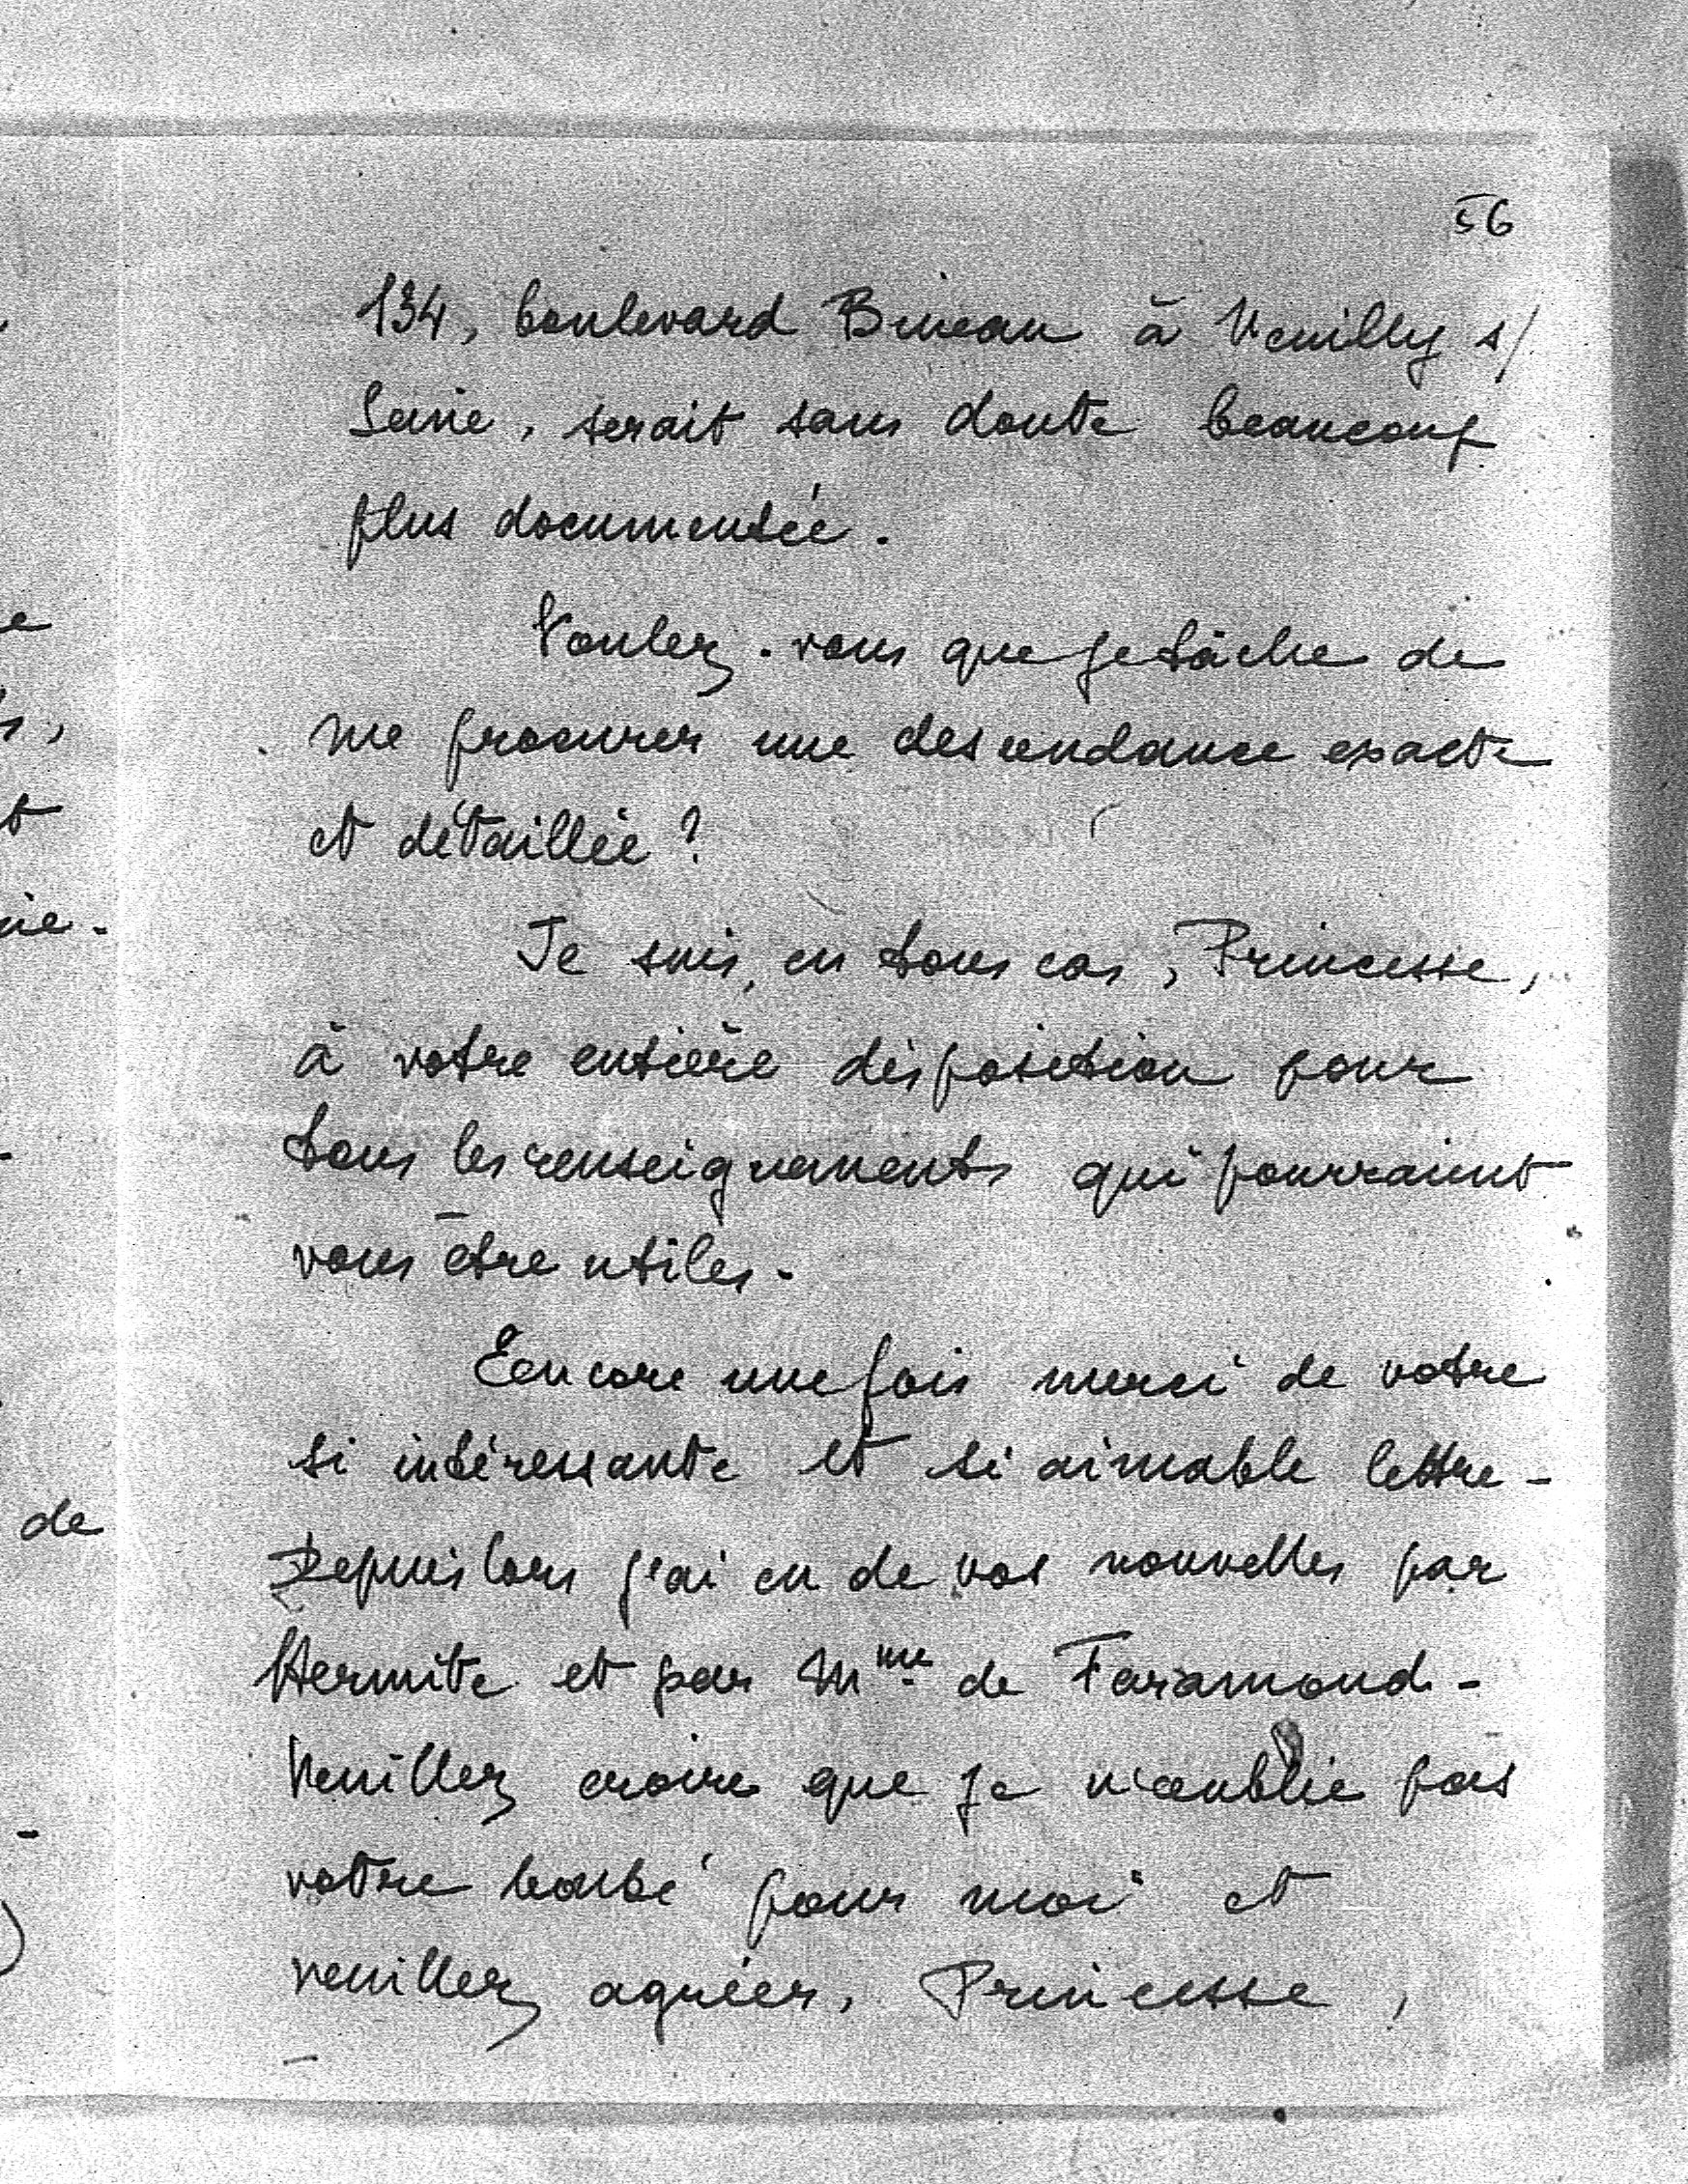 56
134, boulevard Bineau à Neuilly s/
Seine, serait sans doute beaucoup
plus documentée.
Voulez-vous que je tâche de
me procurer une descendance exacte
et détaillée ?
Je suis, en tous cas, Princesse,
à votre entière disposition pour
tous les renseignements qui pourraient
vous être utiles.
Encore une fois merci de votre
si intéressante et si aimable lettre -
Depuis lors j'ai eu de vos nouvelles par
Hermite et par Mme de Faramond -
Veuillez croire que je n'oublie pas
votre bonté pour moi et
veuillez agréer, Princesse,
de